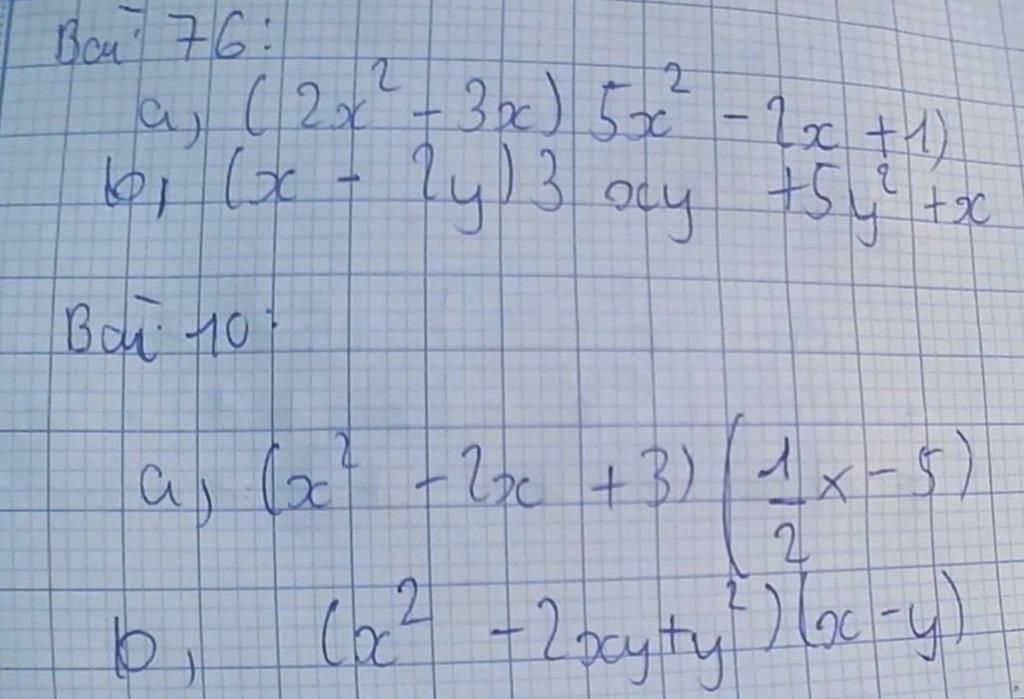 Bài 76:
a, (2x² - 3x) 5x² - 2x + 1)
b, (x - 2y) 3 xy + 5y² + x
Bài 10:
a, (x² - 2x + 3) (1/2 x - 5)
b, (x² - 2xy + y²) (x - y)